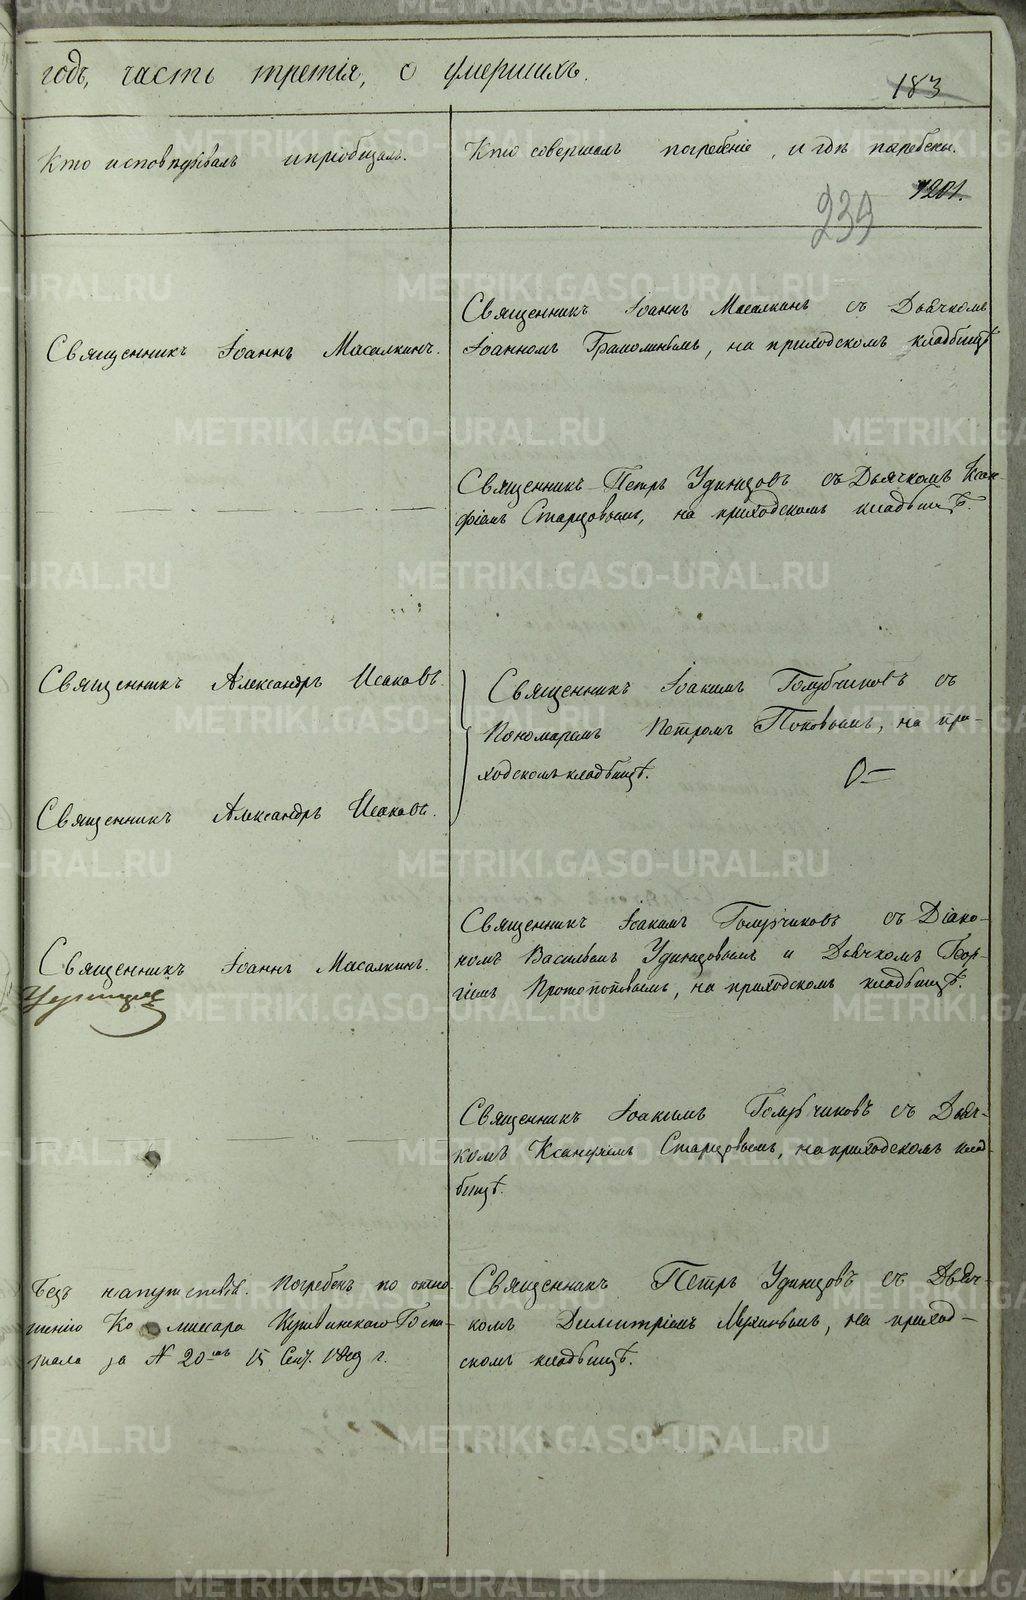 годъ, часть третія, о умершихъ.
183
Кто исповѣдывалъ и пріобщалъ.
Кто совершалъ погребеніе, и гдѣ погребены.
1201.
239
Священникъ Іоаннъ Масалкинъ.
Священникъ Іоаннъ Масалкинъ съ Дьячкомъ
Іоанномъ Грамолинымъ, на приходскомъ кладбищѣ
Священникъ Петръ Удинцовъ съ Дьячкомъ Ксан-
фіемъ Старцовымъ, на приходскомъ кладбищѣ.
Священникъ Александръ Исаковъ.
Священникъ Александръ Исаковъ.
Священникъ Іоакимъ Голубчиковъ съ
Пономаремъ Петромъ Поповымъ, на при-
ходскомъ кладбищѣ.
Священникъ Іоаннъ Масалкинъ.
Священникъ Іоакимъ Голубчиковъ съ Діако-
номъ Васильемъ Удинцовымъ и Дьячкомъ Геор-
гіемъ Протопоповымъ, на приходскомъ кладбищѣ.
Священникъ Іоакимъ Голубчиковъ съ Дьяч-
комъ Ксанфіемъ Старцовымъ, на приходскомъ клад-
бищѣ.
Безъ напутствія. Погребенъ по отно-
шенію Кушвинскаго Госпи-
таля за N 20-мъ 15 Сент. г.
Священникъ Петръ Удинцовъ съ Дьяч-
комъ Димитріемъ, на приход-
скомъ кладбищѣ.
METRIKI.GASO-URAL.RU